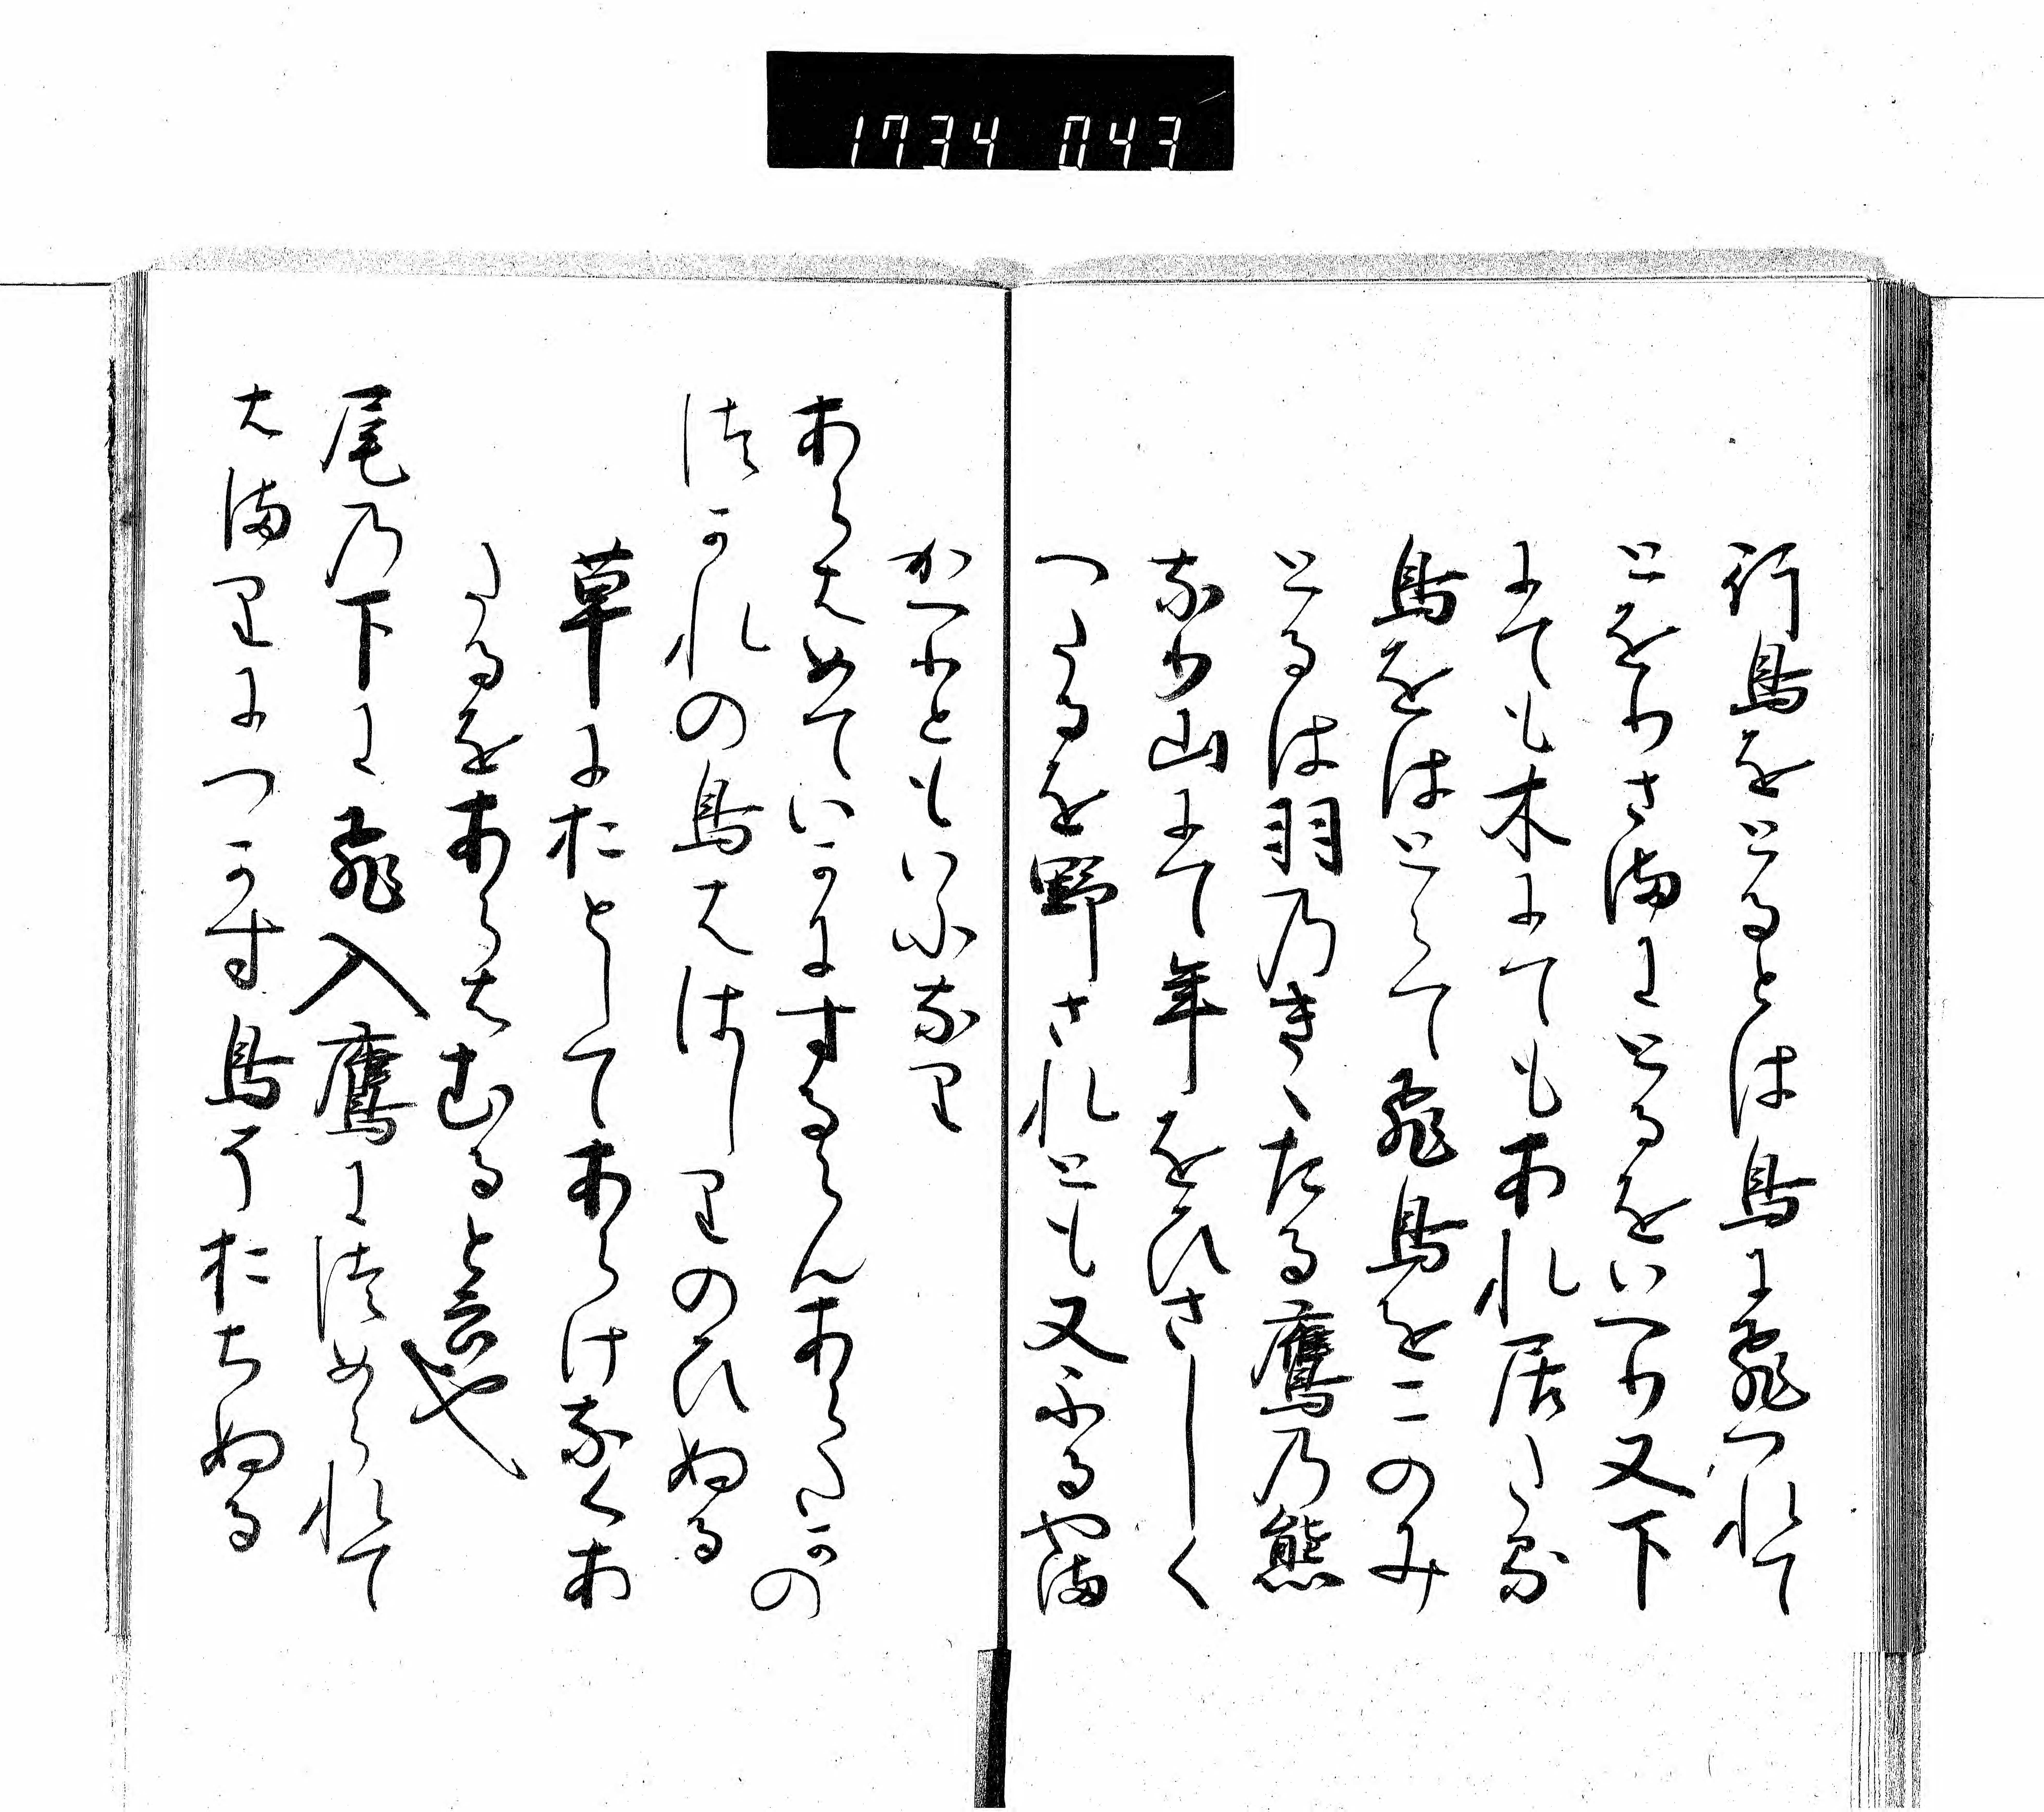 1734 043
行鳥をとるとは鳥に飛つれて
とをりさまにとるをいへり又下
にても木にてもあれ居たる
鳥をはとらて飛鳥をこのみ
とるは羽のきゝたる鷹の熊
なり山にて年をひさしく
つたるを野されとも又ふるやま
かへりともいふなり
あらはめていかにするらんあらたかの
つかれの鳥ははしりのひぬる
草におとしてあらけなくあ
たるをあらはむると云也
尾の下に飛入鷹につめられて
はまりにつかす鳥そおちぬる